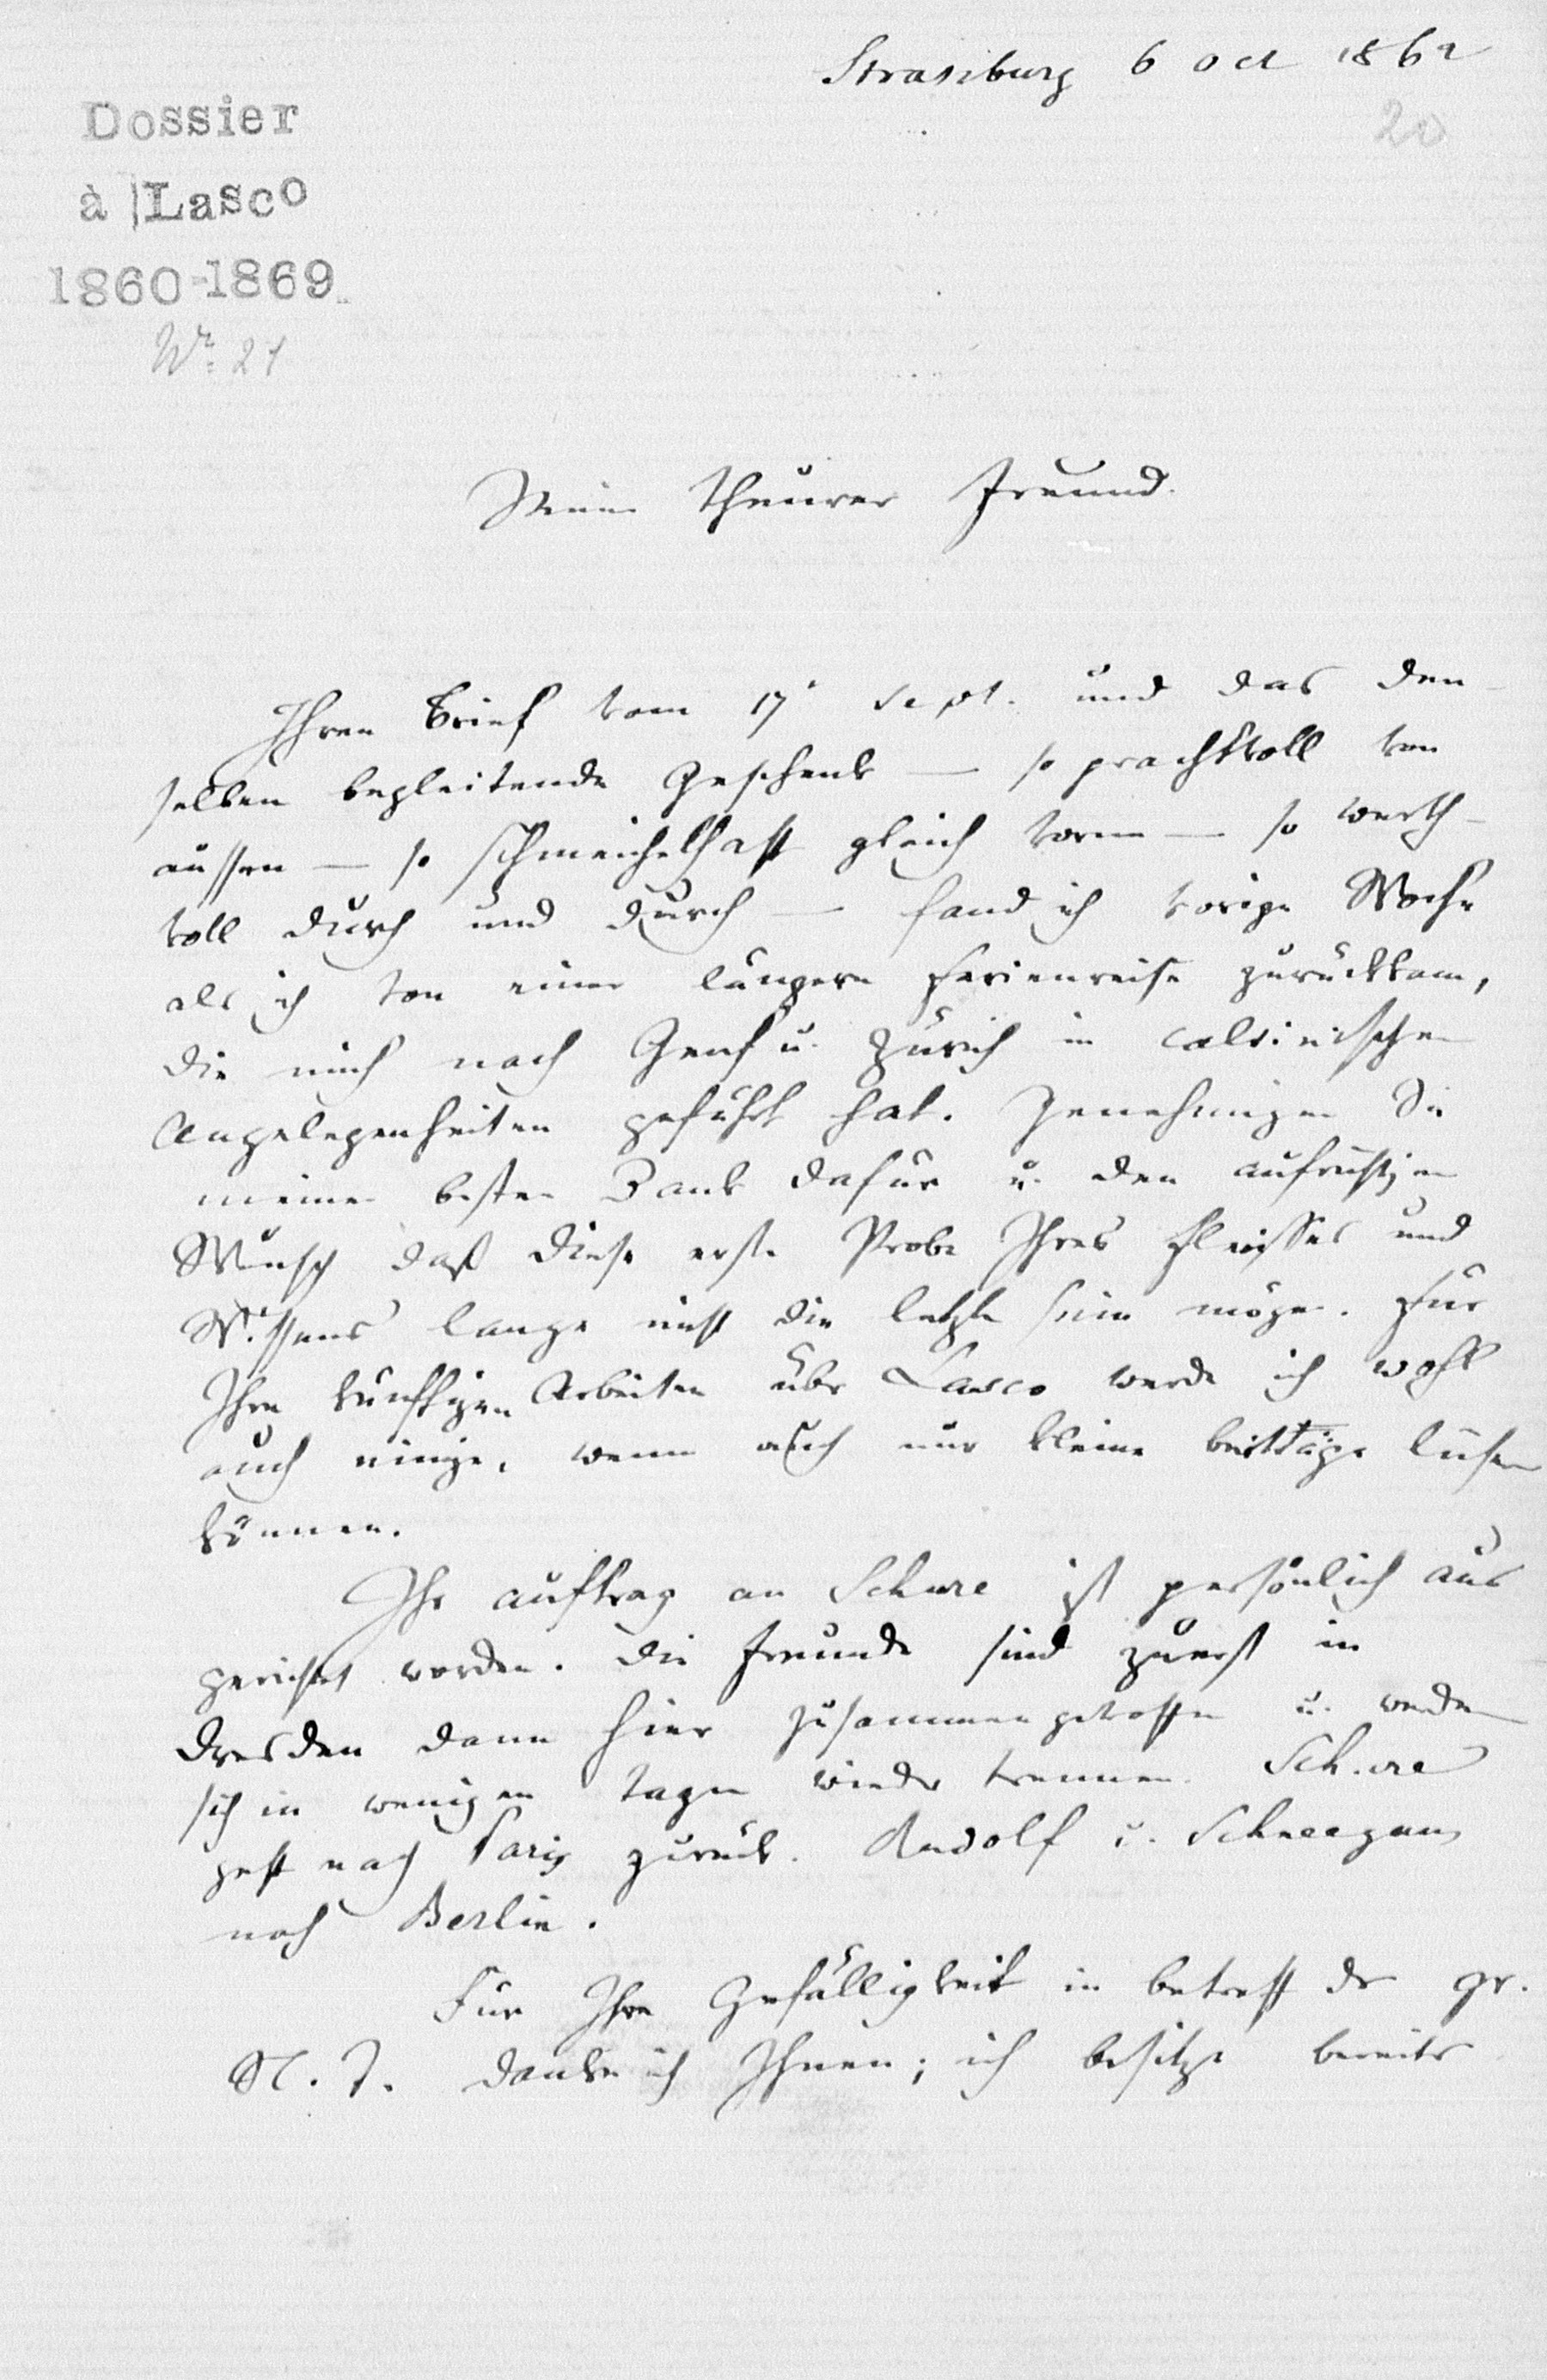 Strasburg 6 Oct 1862
20
Dossier
à Lasco
1860-1869
Nr. 21
Mein theurer Freund.
Ihren Brief vom 17' Sept. und das den-
selben begleitende Geschenk — so prachtvoll von
aussen — so schmeichelhaft gleich vorne — so werth-
voll durch und durch — fand ich vorige Woche
als ich von einer längern Ferienreise zurückkam,
die mich nach Genf u. Zürich in calvinischen
Angelegenheiten geführt hat. Genehmigen Sie
meinen besten Dank dafür u. den aufrichtigen
Wunsch daß diese erste Probe Ihres Fleisses und
Wissens lange nicht die letzte sein möge. Für
Ihre künftigen Arbeiten über Lasco werde ich wohl
auch einige, wenn auch nur kleine Beiträge liefern
können.
Ihr Auftrag an Schure ist persönlich aus
gerichtet worden. Die Freunde sind zuerst in
Dresden dann hier zusammengetroffen u. werden
sich in wenigen Tagen wieder trennen. Schure
geht nach Paris zurück. Rudolf u. Schneegans
nach Berlin.
Für Ihre Gefälligkeit in betreff der gr.
N. T. danke ich Ihnen; ich besitze bereits